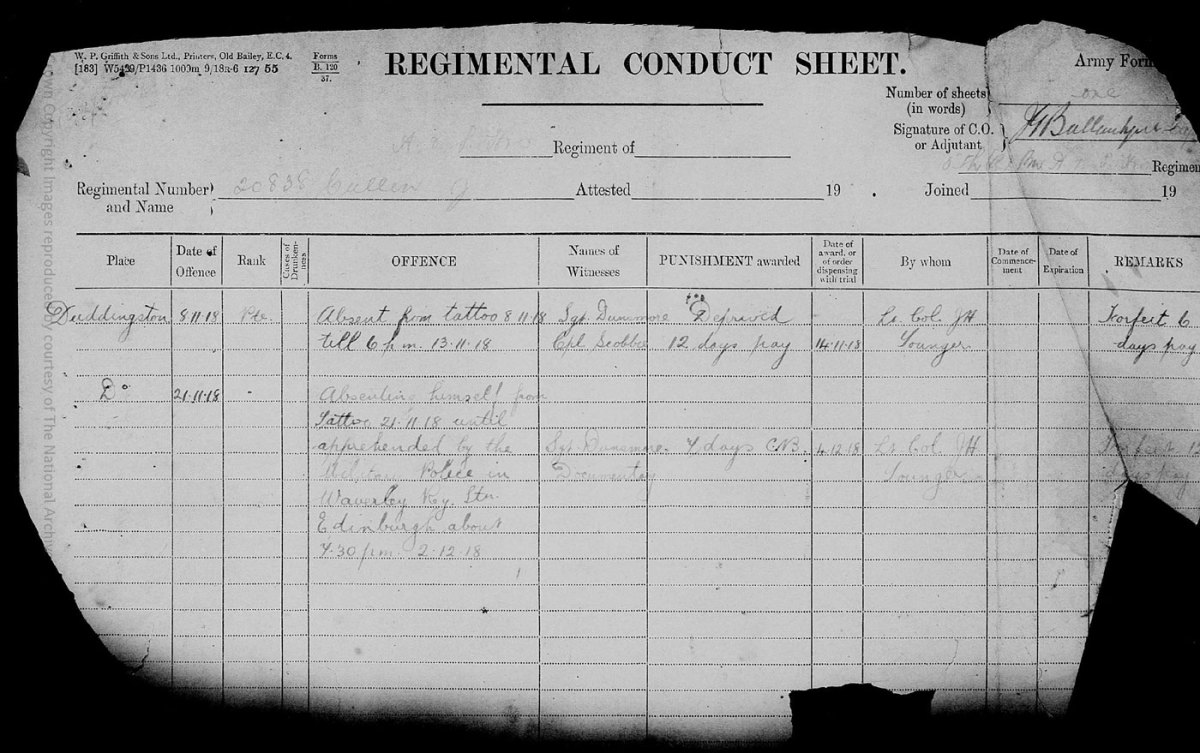 W. P. Griffith & Sons Ltd., Printers, Old Bailey, E.C.4.
[183] W5439/P1436 1000m 9/18R-6 127 55
Forms
B. 120
37.
REGIMENTAL CONDUCT SHEET.
Army Form
Number of sheets
(in words)
one
Signature of C.O.
or Adjutant
Regiment of
Regiment
Regimental Number
and Name
20838 Cullen J
Attested
19 .
Joined
19
Place
Date of
Offence
Rank
Cases of
Drunken-
ness
OFFENCE
Names of
Witnesses
PUNISHMENT awarded
Date of
award, or
of order
dispensing
with trial
By whom
Date of
Commence-
ment
Date of
Expiration
REMARKS
Duddingston 8.11.18 Pte. Absent from tattoo 8.11.18 Sgt. Dunsmore Deprived Lt. Col. JH Forfeit 6
till 6 p.m. 13.11.18 Cpl Scobbie 12 days pay 14.11.18 Younger days pay
Do 21.11.18 - Absenting himself from
Tattoo 21.11.18 until
apprehended by the Sgt. Dunsmore. 7 days C.B. 4.12.18 Lt. Col. JH Forfeit 12
Police in Documentary Younger days pay
Waverley Ry. Stn.
Edinburgh about
7.30 p.m. 2.12.18
Crown Copyright Images reproduced by courtesy of The National Archiv